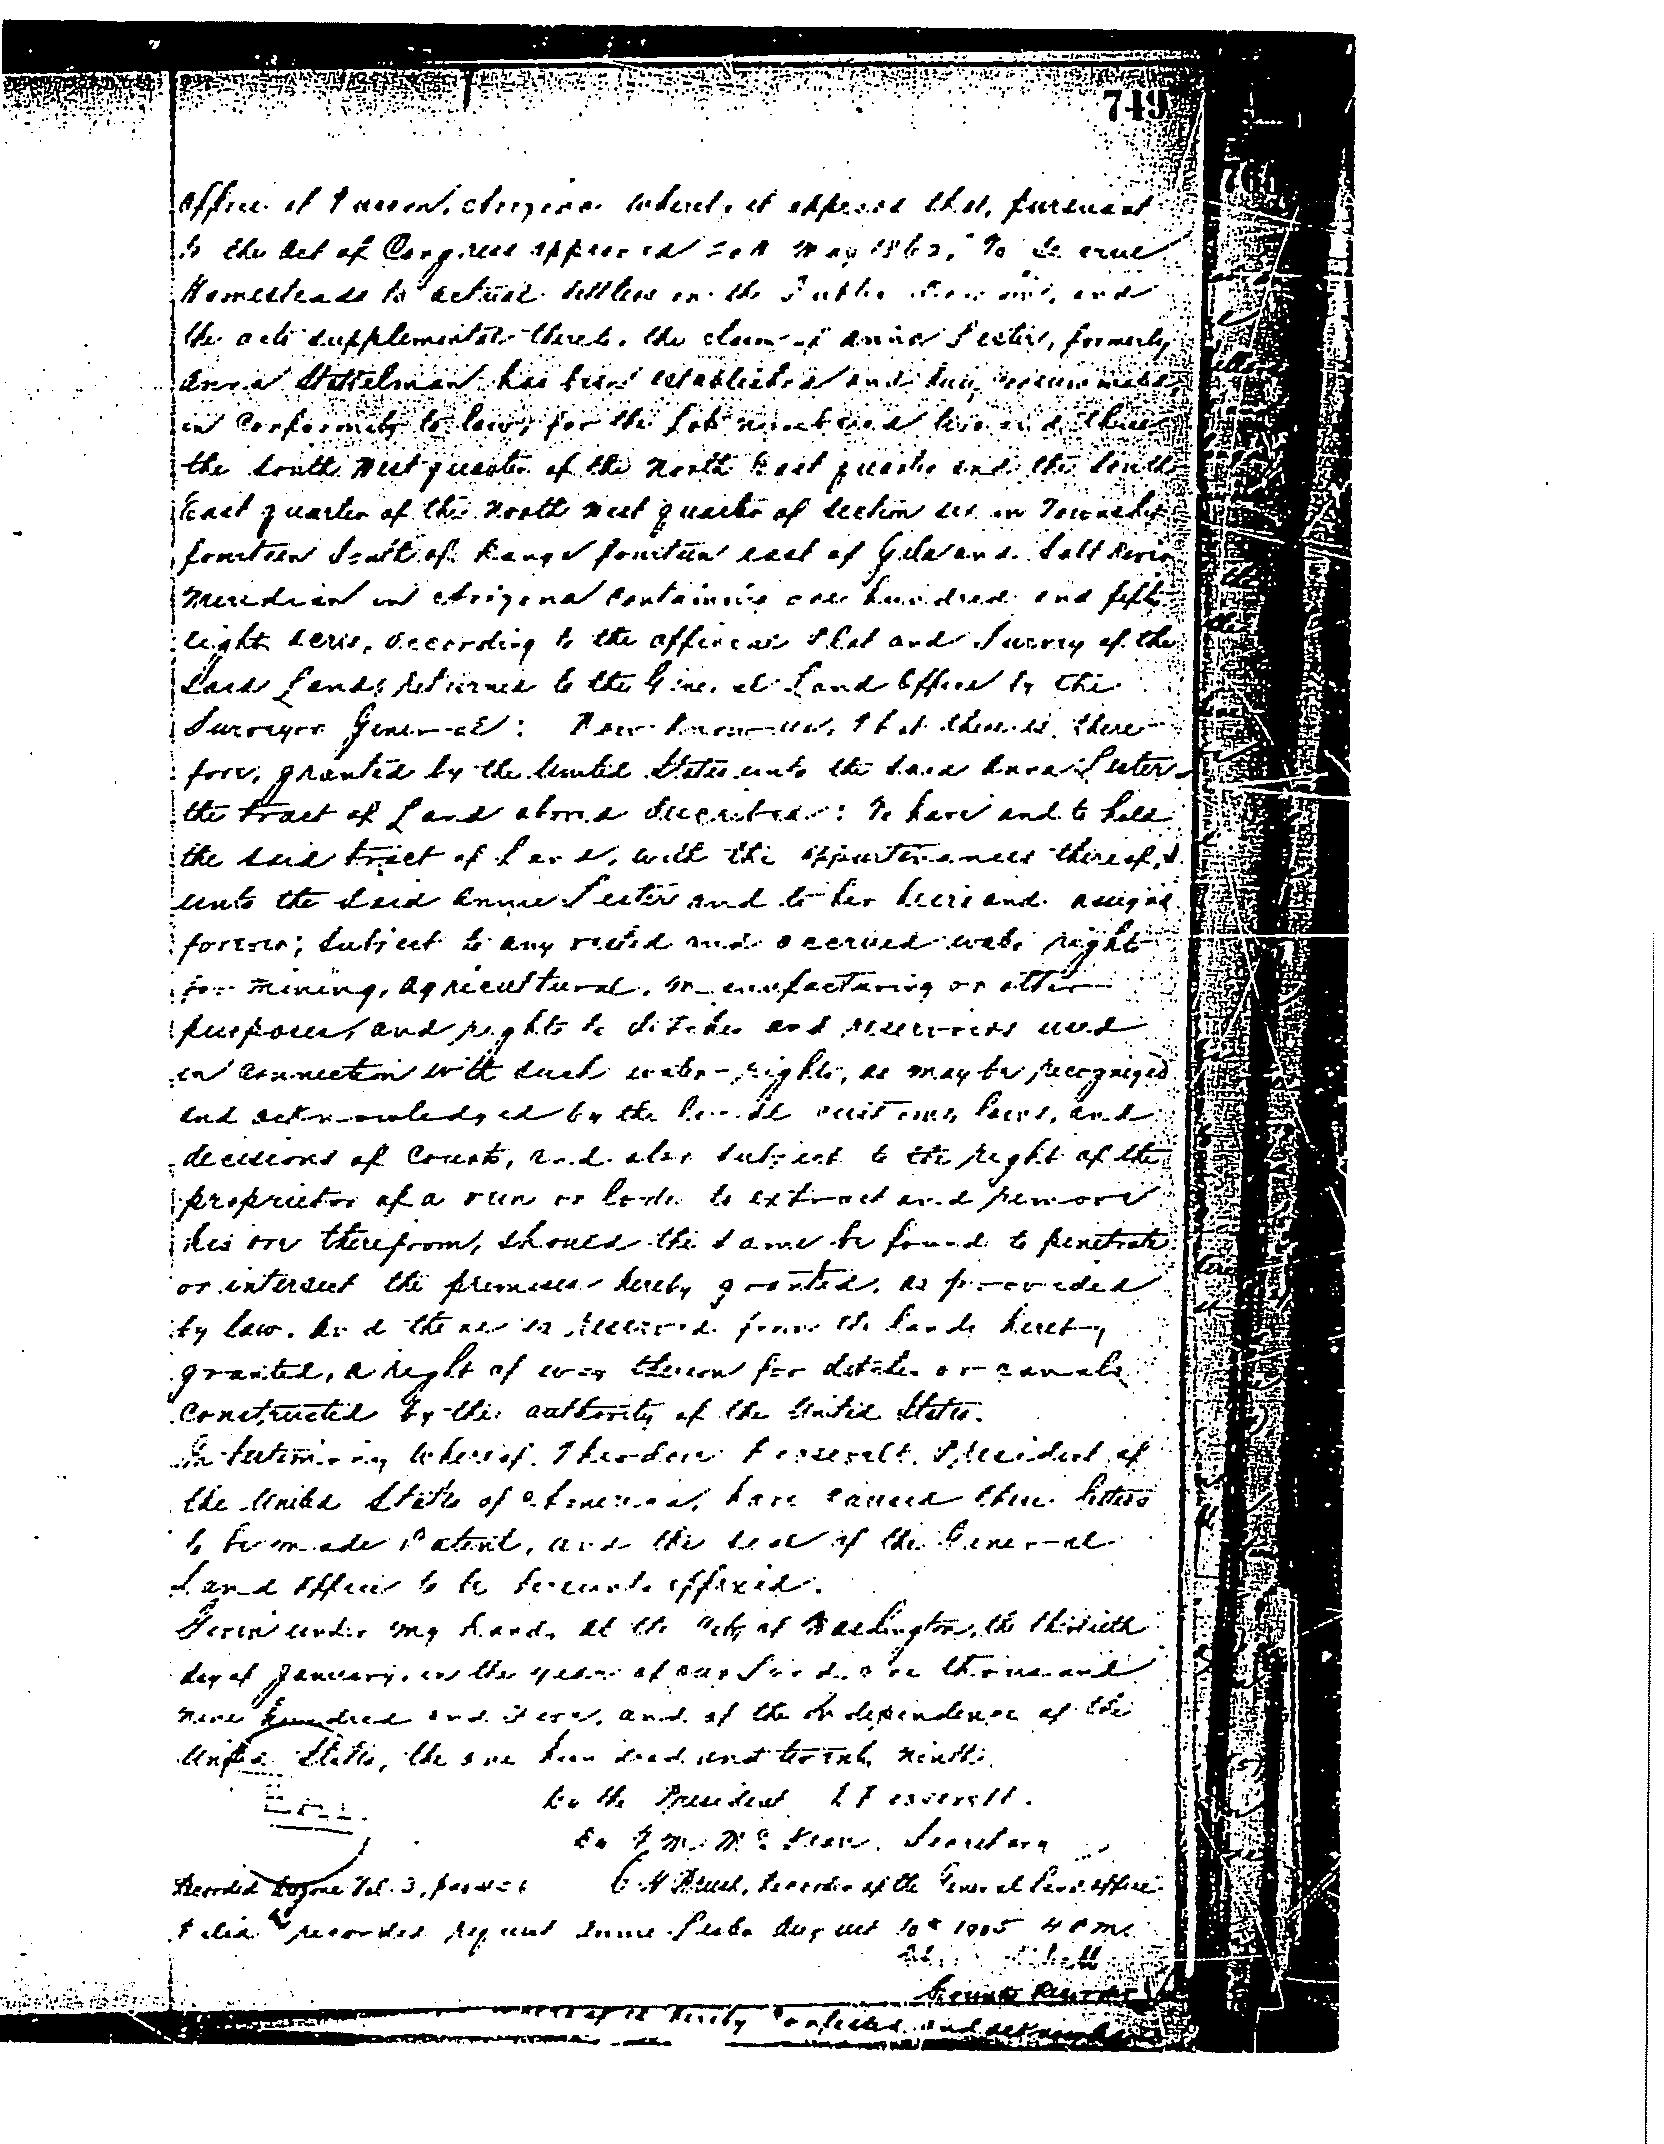 749
Office at Tucson, Arizona whereby it appears that, pursuant
to the Act of Congress approved 20th May 1862, "To Secure
Homesteads to actual Settlers on the Public Domain", and
the acts supplemental thereto, the claim of Anna Lester, formerly
Anna Stattelman has been established and duly consummated,
in conformity to law, for the Lots numbered two and three
the South West quarter of the North East quarter and the South
East quarter of the North West quarter of Section six in Township
fourteen South of Range fourteen east of Gila and Salt River
Meridian in Arizona containing one hundred and fifty
eight acres, according to the official Plat and Survey of the
said Land, returned to the General Land Office by the
Surveyor General: Now know ye, That there is, there-
fore, granted by the United States unto the said Anna Lester
the tract of Land above described: To have and to hold
the said tract of Land, with the appurtenances thereof,
unto the said Anna Lester and to her heirs and assigns
forever; subject to any vested and accrued water rights
for mining, agricultural, manufacturing or other
purposes, and rights to ditches and reservoirs used
in connection with such water-rights, as may be recognized
and acknowledged by the local customs, laws, and
decisions of Courts, and also subject to the right of the
proprietor of a vein or lode to extract and remove
his ore therefrom, should the same be found to penetrate
or intersect the premises hereby granted, as provided
by law. And there is reserved from the lands hereby
granted, a right of way thereon for ditches or canals
constructed by the authority of the United States.
In testimony whereof, I Theodore Roosevelt, President of
the United States of America, have caused these letters
to be made Patent, and the seal of the General
Land Office to be hereunto affixed.
Given under my hand, at the City of Washington, the thirtieth
day of January, in the year of our Lord, one thousand
nine hundred and five, and of the Independence of the
United States, the one hundred and twenty ninth.
Seal
By the President T Roosevelt.
By F. M. McKean, Secretary
Recorded Arizona Vol. 3, C H Brush, Recorder of the General Land Office
Filed & recorded request Anna Lester August 10th 1905 4 P M.
County Recorder
hereby confessed and acknow